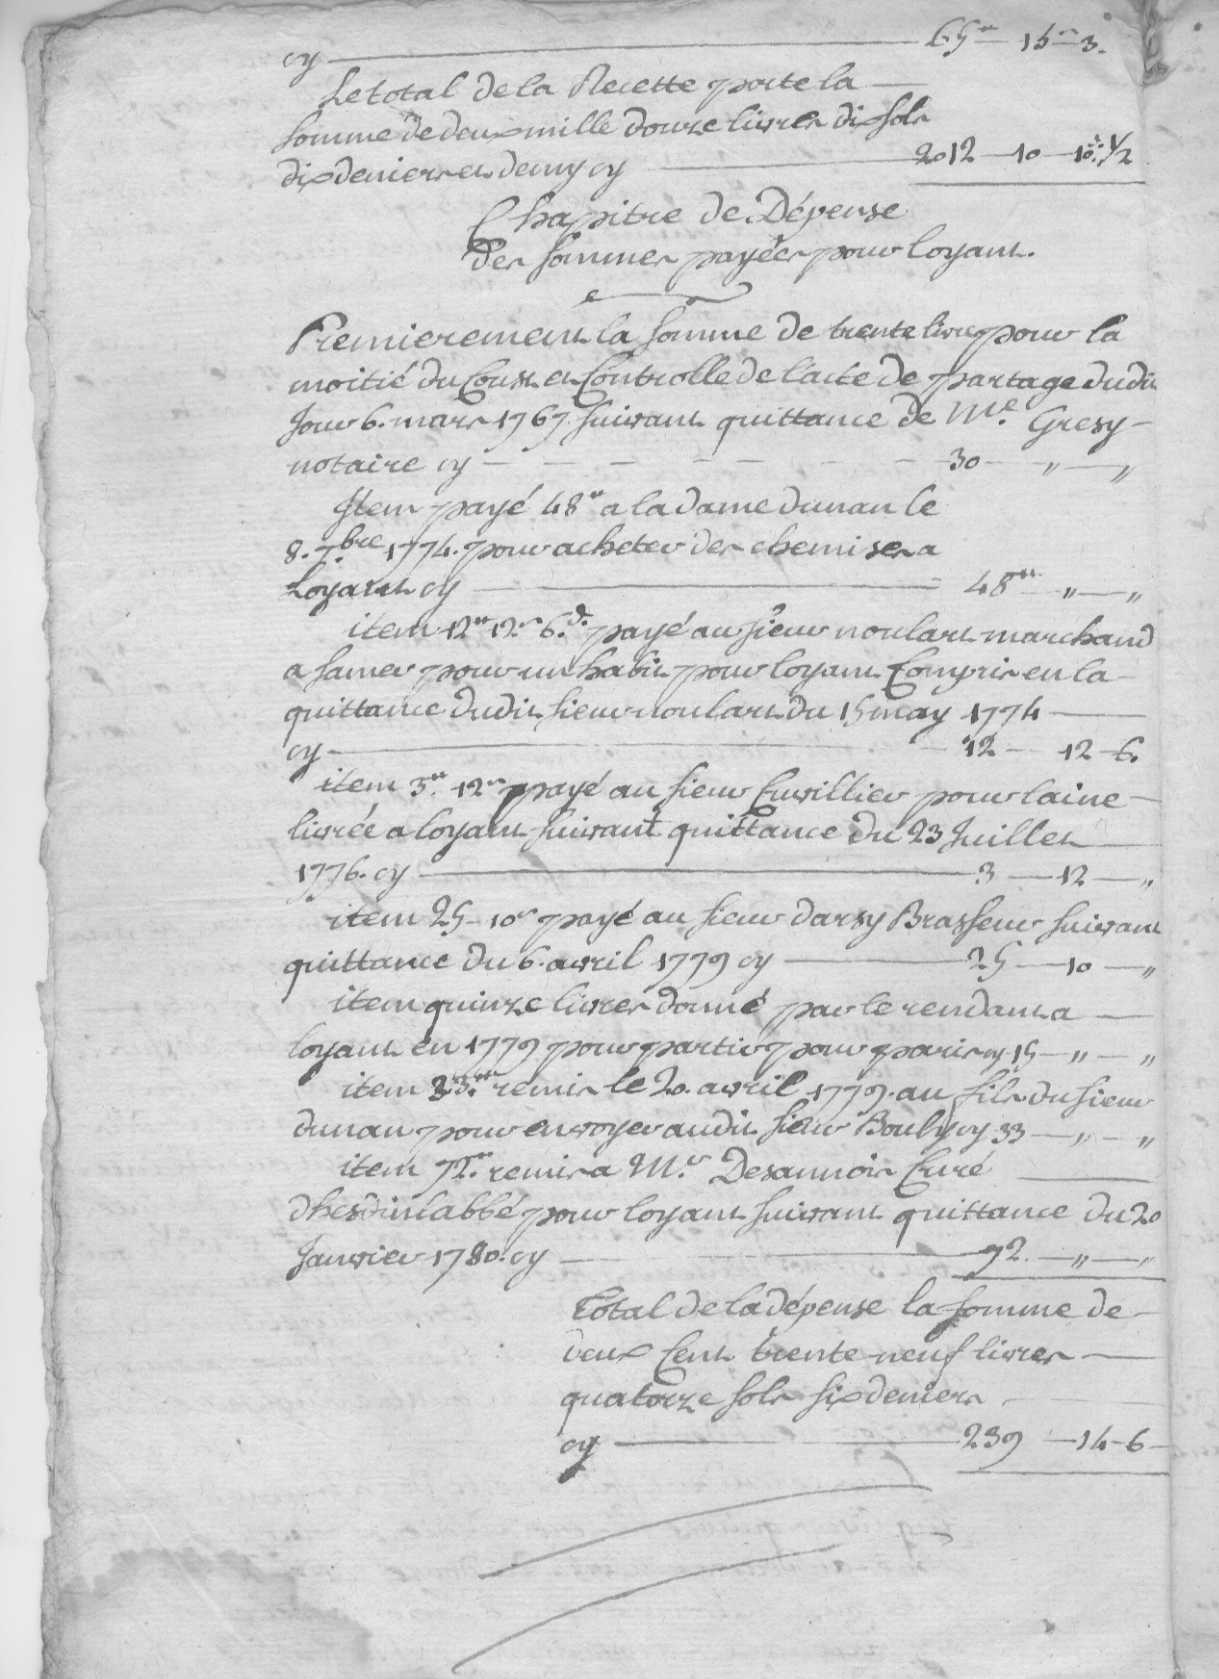 cy 65ᵗᵗ 15ˢ 3.
Le total de la Recette porte la
somme de deux mille douze livres dix sols
dix deniers et demy cy 2012 10 10: 1/2
Chapitre de Dépense
des sommes payées pour loyant.
Premierement la somme de trente livres pour la
moitié du Coust et Controlle de l'acte de partage dudit
Jour 6. mars 1767 suivant quittance de Me. Gresy
notaire cy 30 " "
Item payé 48ᵗᵗ a la dame dunan le
8. 7.bre 1774. pour acheter des chemises a
Loyant cy 48ᵗᵗ " "
item 12ᵗᵗ 12.ˢ 6.d. payé au sieur noulart marchand
a samer pour un habit pour loyant Compris en la
quittance dudit sieur noulart du 15 may 1774
cy 12 12 6.
item 3ᵗᵗ. 12ˢ payé au sieur Cuvillier pour laine
livrée a loyant suivant quittance du 23 Juillet
1776. cy 3 12 "
item 25 10ˢ payé au sieur darsy Brasseur suivant
quittance du 6. avril 1779 cy 25 10 "
item quinze livres donné par le rendant a
loyant en 1779 pour partir pour paris cy 15 " "
item 33.ᵗᵗ remis le 20. avril 1779. au fils du sieur
dunan pour envoyer audit sieur Bouly cy 33 " "
item 72.ᵗᵗ remis a M.r Desannois Curé
dhesdinlabbé pour loyant suivant quittance du 20
Janvier 1780. cy 72. " "
Total de la dépense la somme de
deux Cent trente-neuf livres
quatorze sols six deniers
cy 239 14 6